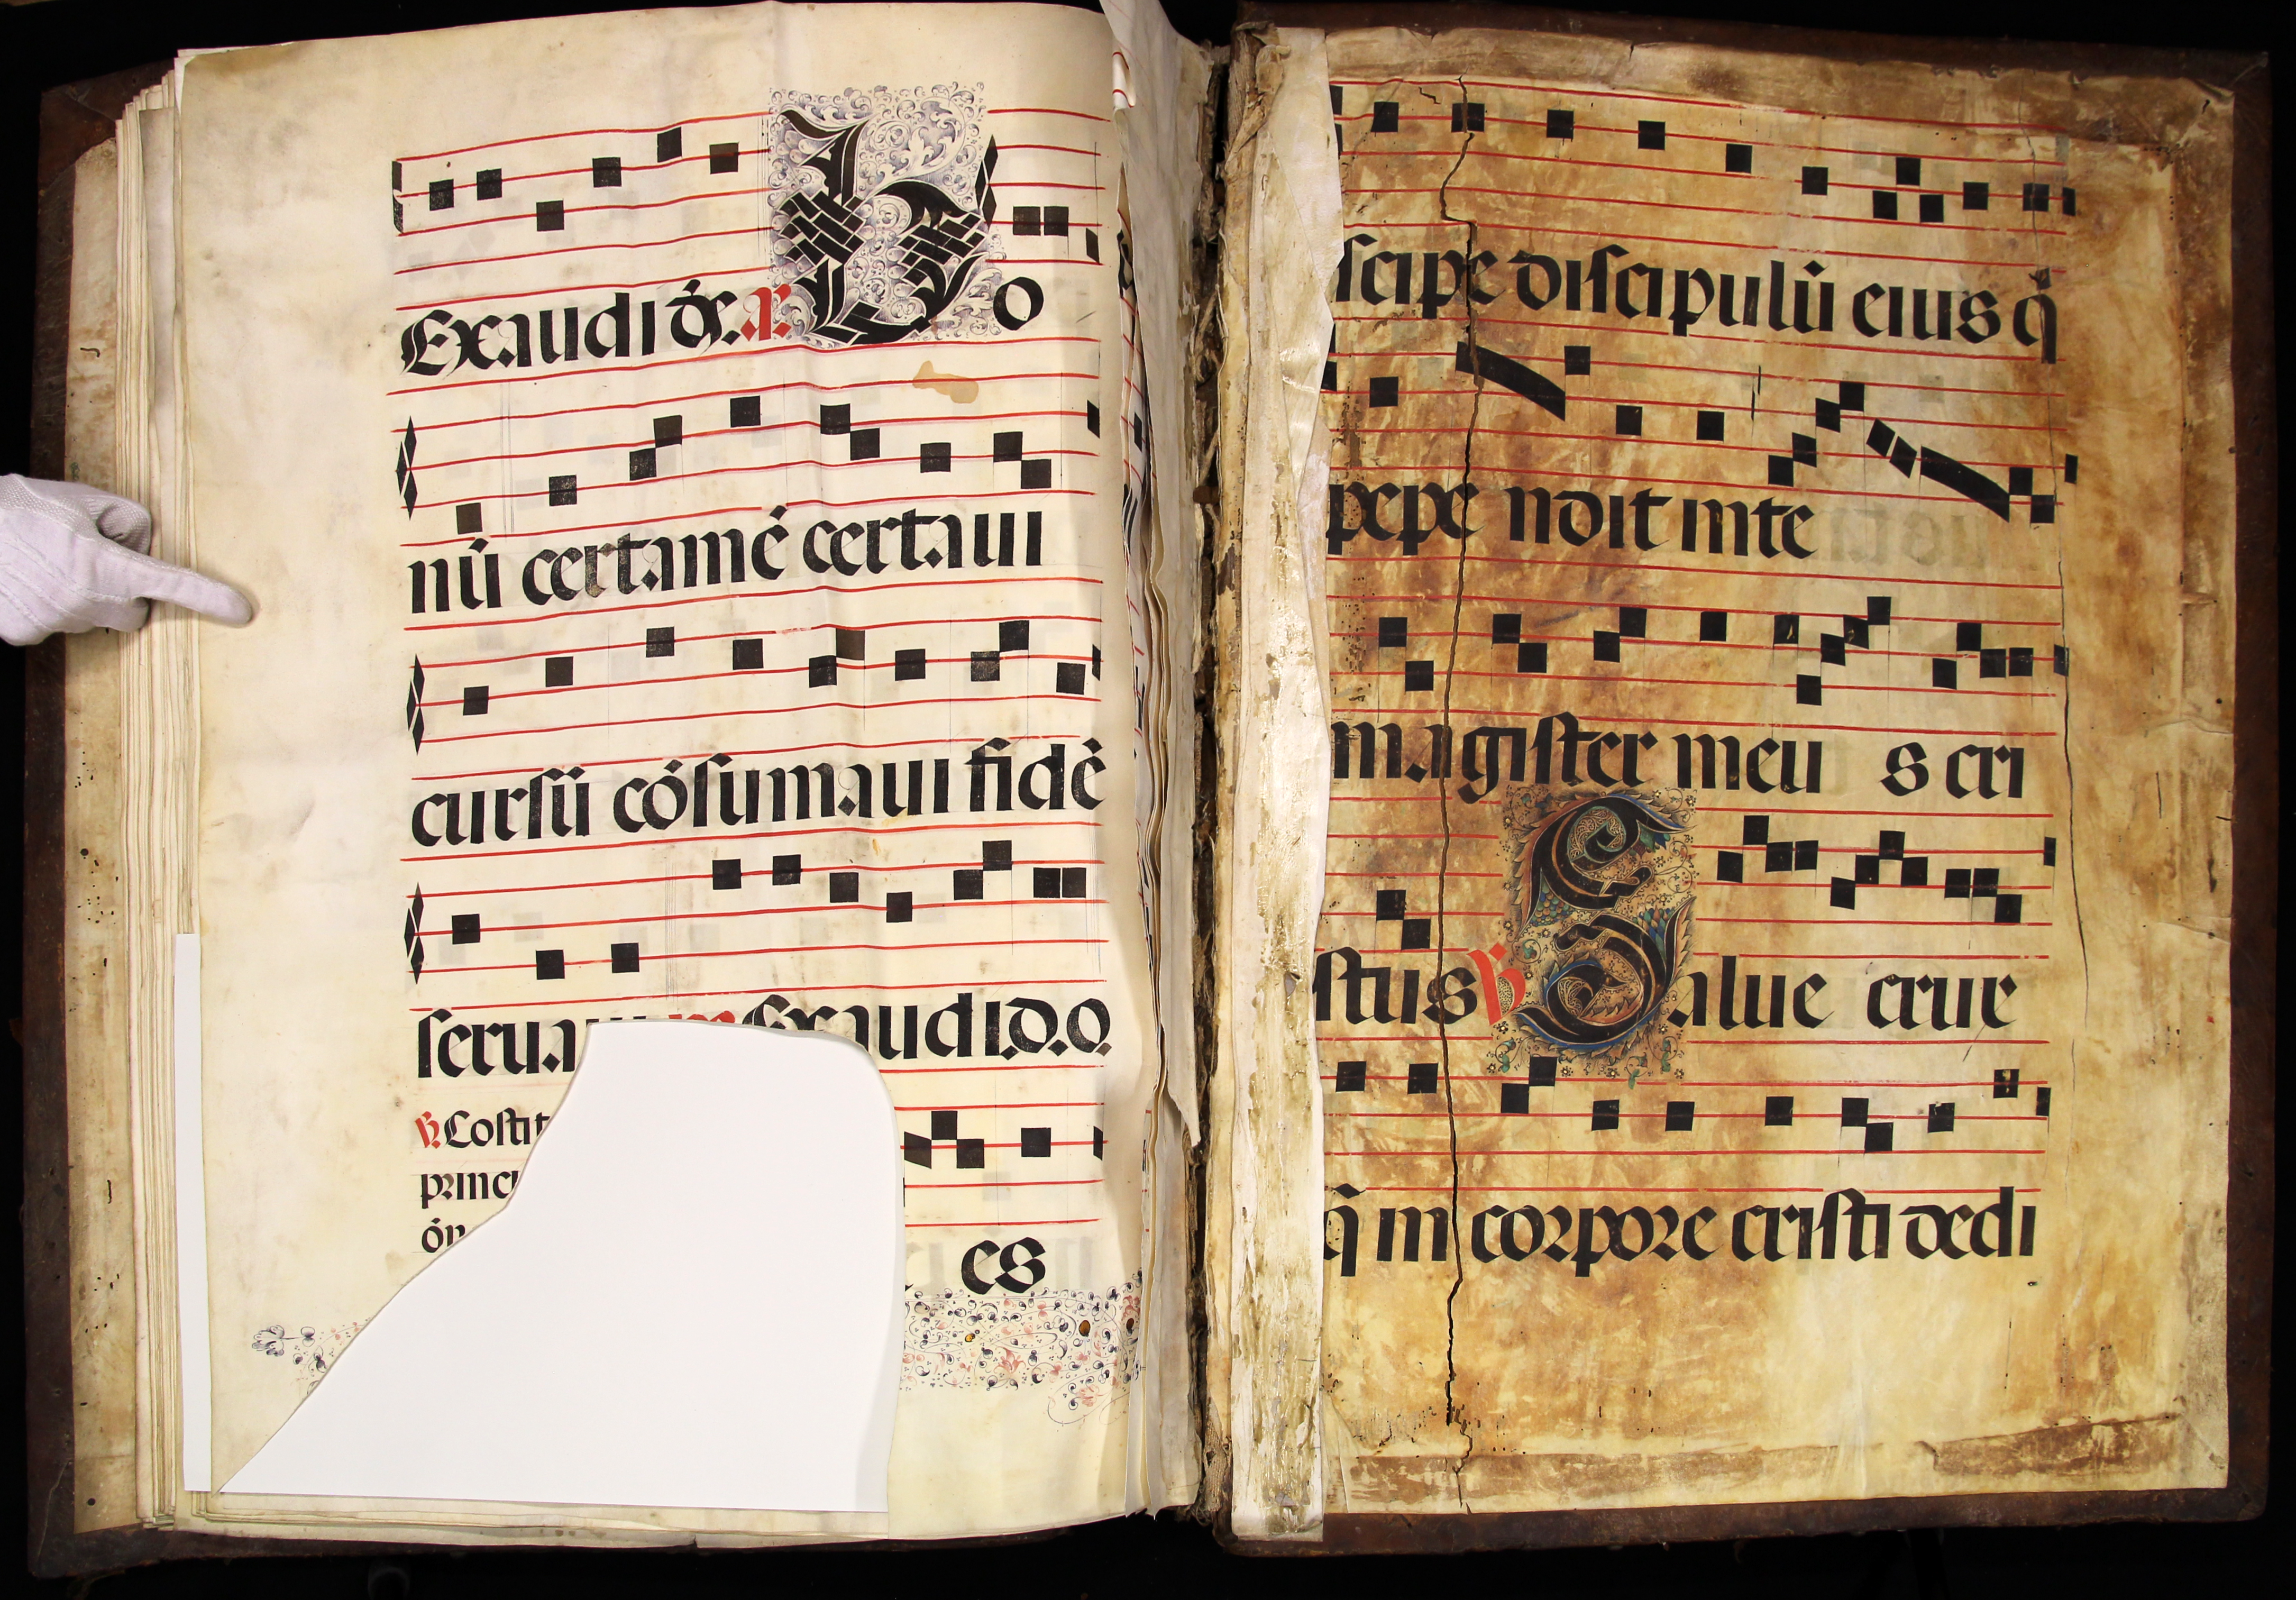 Exaudi de. a. Bo
nū certamē certaui
cursū cōsumaui fidē
Exaudi.d.o.
℣. Costit
princi
es
scipe discipulū eius q̄
pepe ndit in te
magister meu s cri
stus ℣ Salue crux
q̄ in corpore cristi dedi